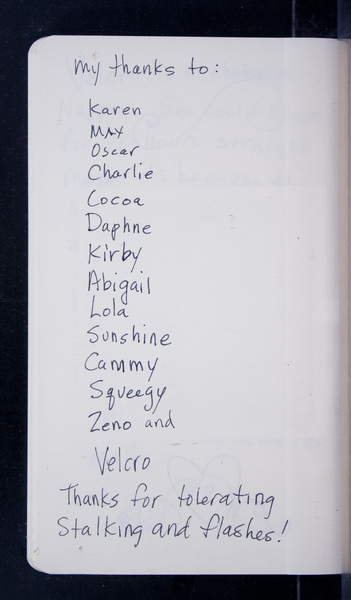 my thanks to:
Karen
MAX
Oscar
Charlie
Cocoa
Daphne
Kirby
Abigail
Lola
Sunshine
Cammy
Squeegy
Zeno and
Velcro
Thanks for tolerating
Stalking and flashes!